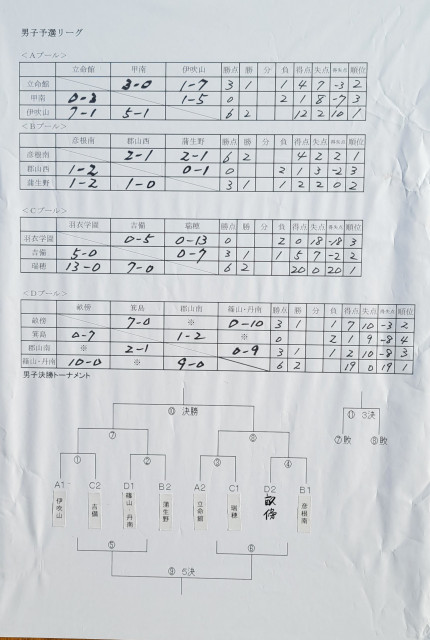 男子予選リーグ
<Aプール>
立命館 甲南 伊吹山 勝点 勝 分 負 得点 失点 得失点 順位
立命館 3-0 1-7 3 1 1 4 7 -3 2
甲南 0-3 1-5 0 2 1 8 -7 3
伊吹山 7-1 5-1 6 2 12 2 10 1
<Bプール>
彦根南 郡山西 蒲生野 勝点 勝 分 負 得点 失点 得失点 順位
彦根南 2-1 2-1 6 2 4 2 2 1
郡山西 1-2 0-1 0 2 1 3 -2 3
蒲生野 1-2 1-0 3 1 1 2 2 0 2
<Cプール>
羽衣学園 吉備 瑞穂 勝点 勝 分 負 得点 失点 得失点 順位
羽衣学園 0-5 0-13 0 2 0 18 -18 3
吉備 5-0 0-7 3 1 1 5 7 -2 2
瑞穂 13-0 7-0 6 2 20 0 20 1
<Dプール>
畝傍 箕島 郡山南 篠山・丹南 勝点 勝 分 負 得点 失点 得失点 順位
畝傍 7-0 ※ 0-10 3 1 1 7 10 -3 2
箕島 0-7 1-2 ※ 0 2 1 9 -8 4
郡山南 ※ 2-1 0-9 3 1 1 2 10 -8 3
篠山・丹南 10-0 ※ 9-0 6 2 19 0 19 1
男子決勝トーナメント
⑩ 決勝 ⑪ 3決
⑦ ⑧ ⑦敗 ⑧敗
① ② ③ ④
A1 C2 D1 B2 A2 C1 D2 B1
伊吹山 吉備 篠山 丹南 蒲生野 立命館 瑞穂 畝傍 彦根南
⑤ ⑥
⑨ 5決